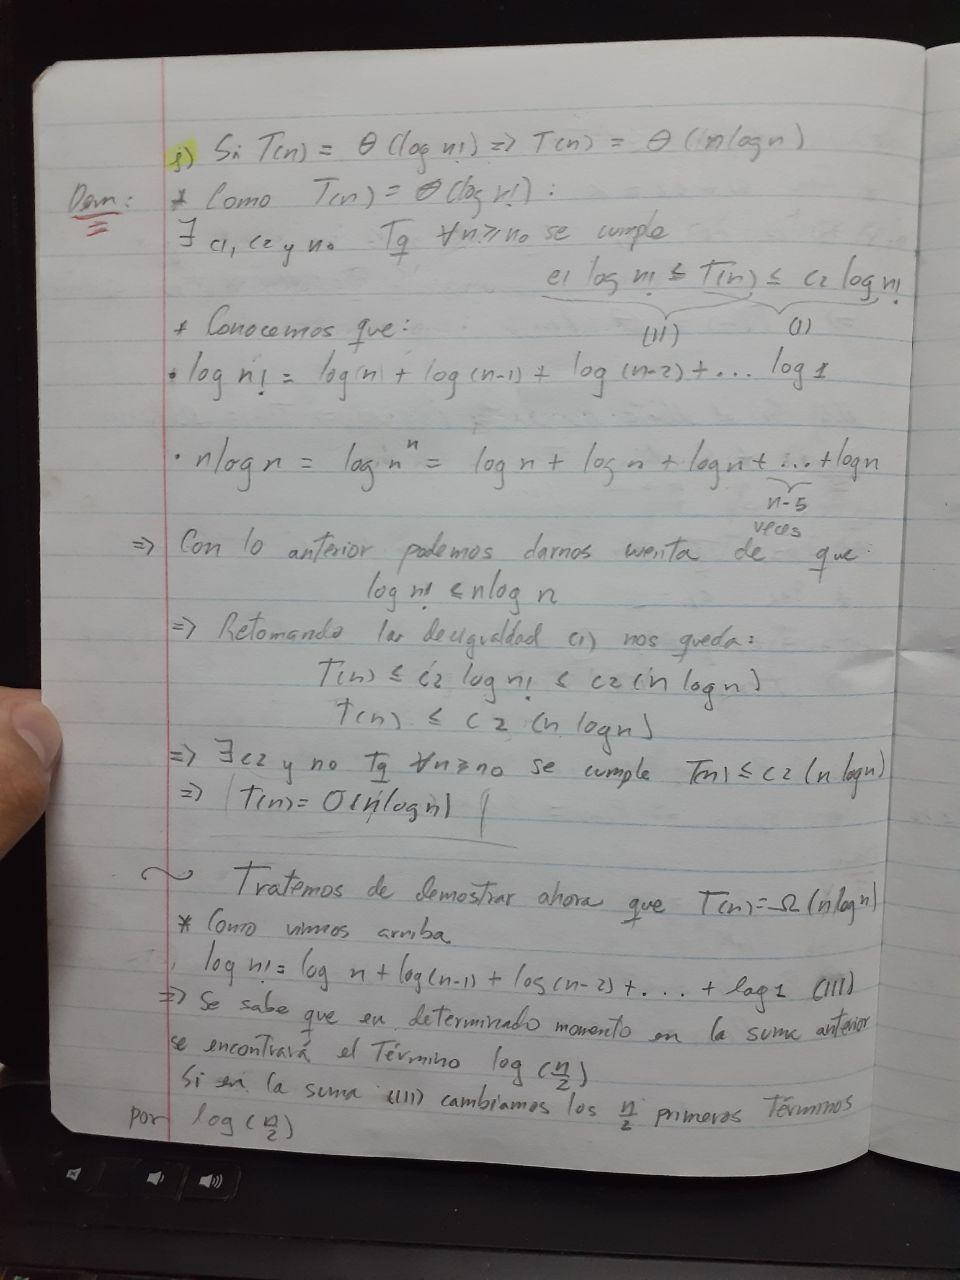 j) Si T(n) = θ(log n!) => T(n) = θ(nlogn)
Dem: * Como T(n) = θ(log n!):
∃ c1, c2 y no Tq ∀n≥no se cumple
c1 log n! ≤ T(n) ≤ c2 log n!
(II) (I)
* Conocemos que:
• log n! = log(n) + log(n-1) + log(n-2) + ... log 1
• nlog n = log n^n = log n + log n + logn + ... + logn
n-5
veces
=> Con lo anterior podemos darnos cuenta de que:
log n! ≤ nlog n
=> Retomando la desigualdad (1) nos queda:
T(n) ≤ c2 log n! ≤ c2 (n logn)
T(n) ≤ c2 (n logn)
=> ∃ c2 y no Tq ∀n≥no se cumple T(n) ≤ c2 (n logn)
=> T(n) = O(nlogn)
~ Tratemos de demostrar ahora que T(n)=Ω(nlogn)
* Como vimos arriba
log n! = log n + log(n-1) + log(n-2) + ... + log1 (III)
=> Se sabe que en determinado momento en la suma anterior
se encontrará el Término log(n/2)
Si en la suma (III) cambiamos los n/2 primeros Términos
por log(n/2)